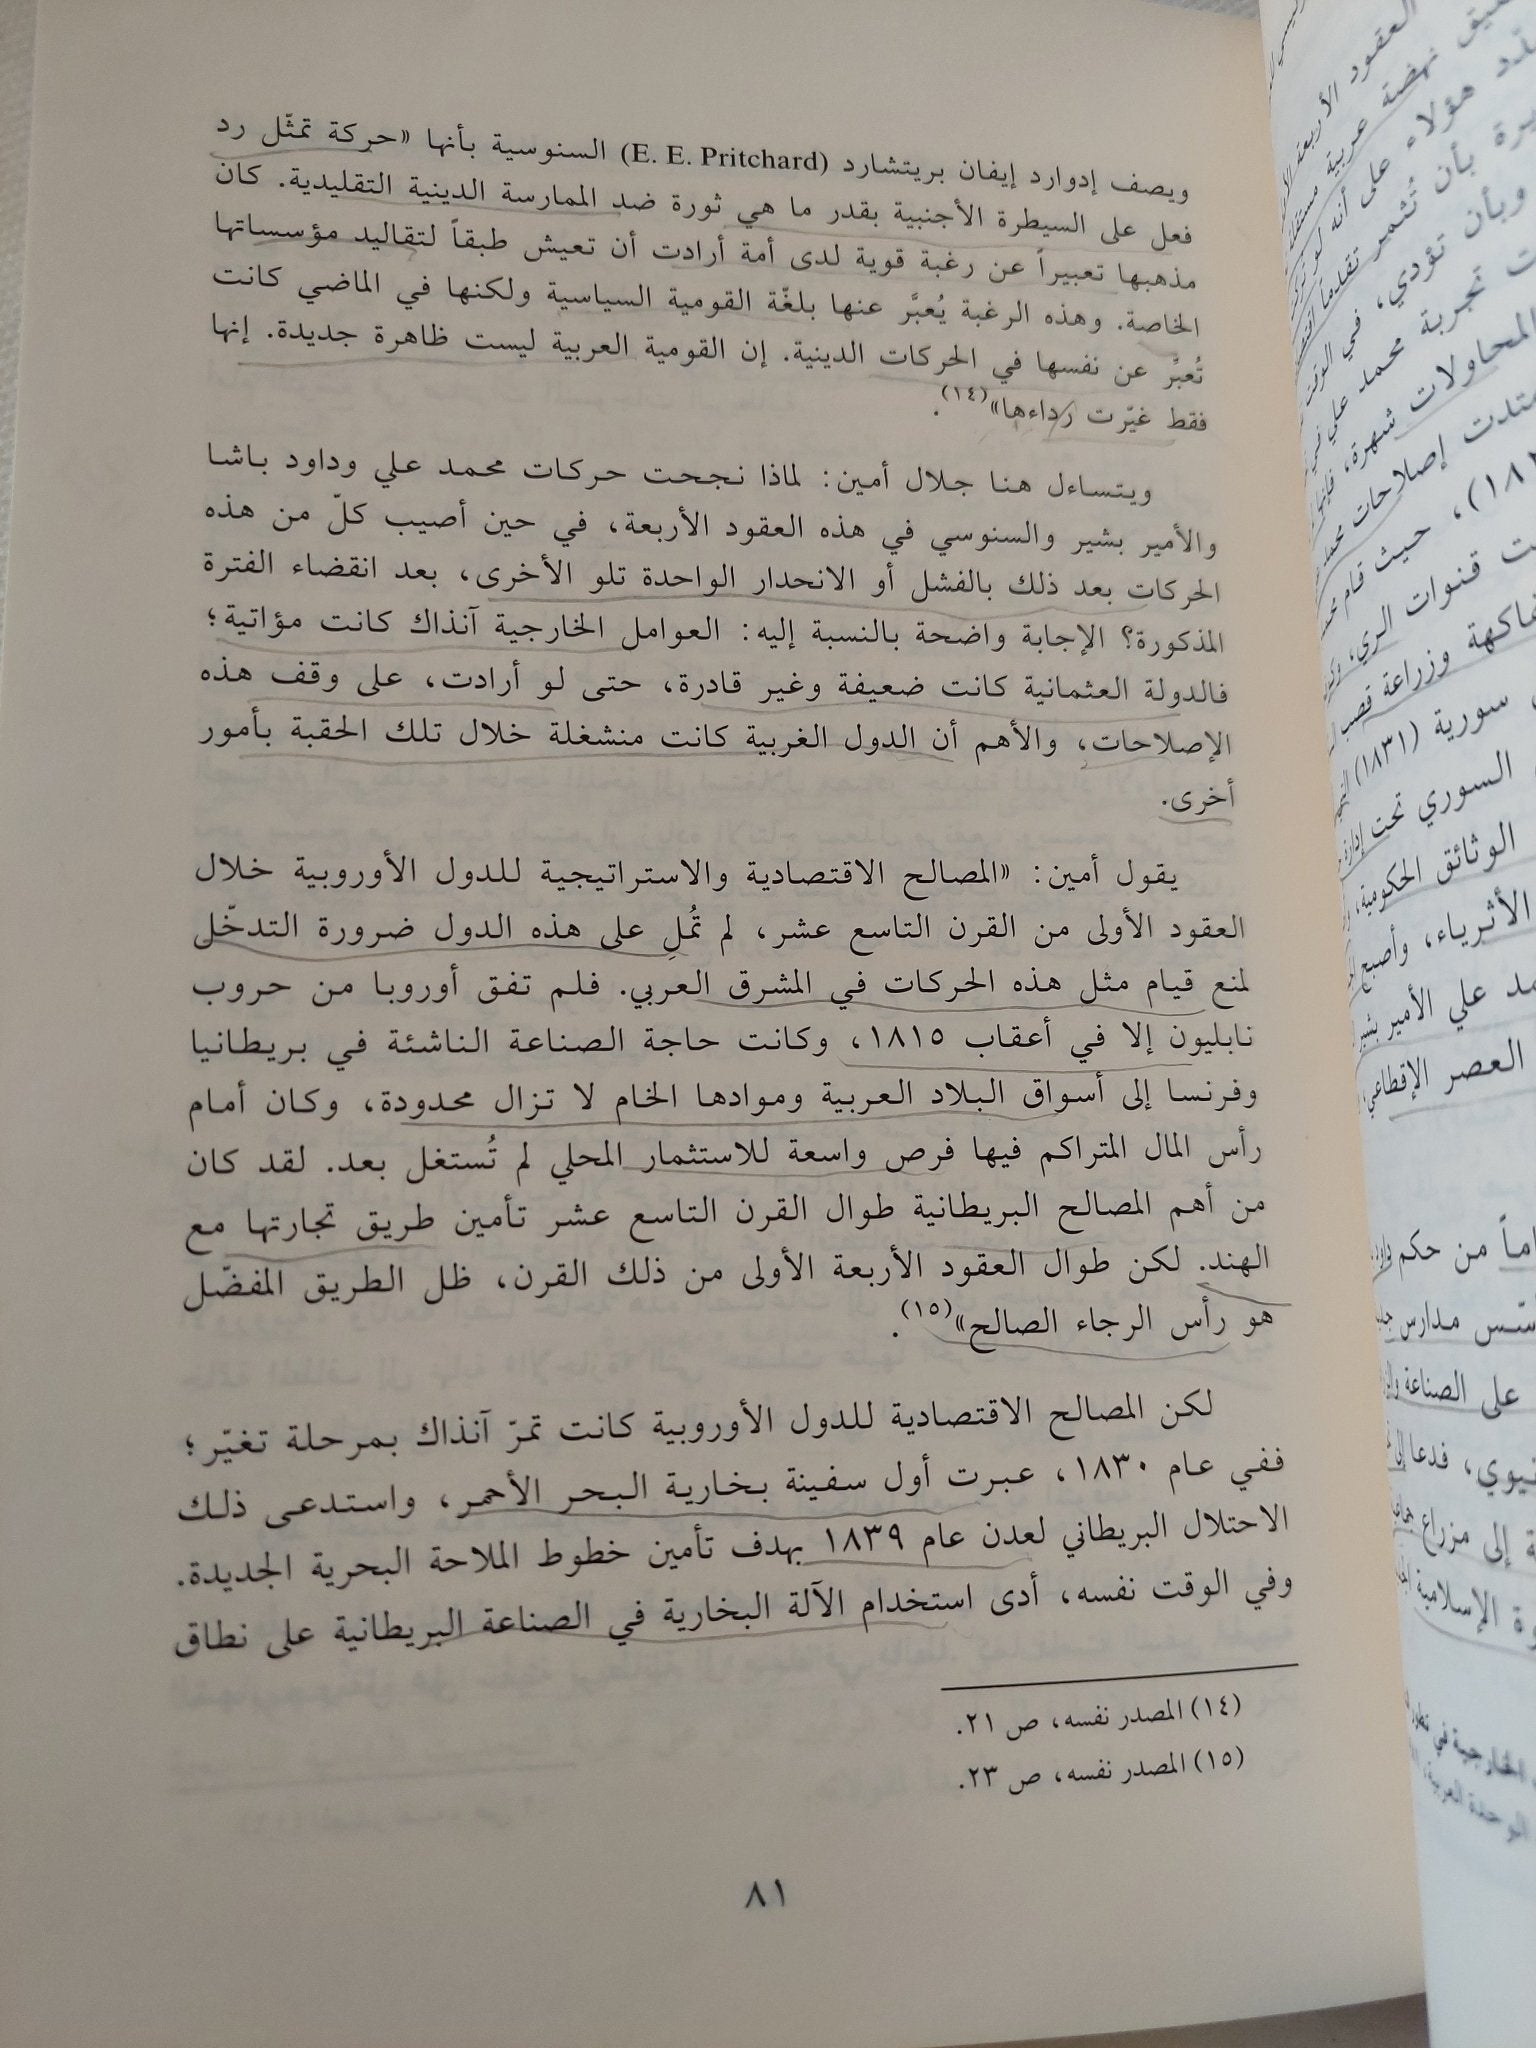 ويصف إدوارد إيفان بريتشارد (E. E. Pritchard) السنوسية بأنها «حركة تمثّل رد
فعل على السيطرة الأجنبية بقدر ما هي ثورة ضد الممارسة الدينية التقليدية. كان
مذهبها تعبيراً عن رغبة قوية لدى أمة أرادت أن تعيش طبقاً لتقاليد مؤسساتها
الخاصة. وهذه الرغبة يُعبَّر عنها بلغّة القومية السياسية ولكنها في الماضي كانت
تُعبِّر عن نفسها في الحركات الدينية. إن القومية العربية ليست ظاهرة جديدة. إنها
فقط غيّرت رداءها»(١٤).
ويتساءل هنا جلال أمين: لماذا نجحت حركات محمد علي وداود باشا
والأمير بشير والسنوسي في هذه العقود الأربعة، في حين أصيب كلّ من هذه
الحركات بعد ذلك بالفشل أو الانحدار الواحدة تلو الأخرى، بعد انقضاء الفترة
المذكورة؟ الإجابة واضحة بالنسبة إليه: العوامل الخارجية آنذاك كانت مؤاتية؛
فالدولة العثمانية كانت ضعيفة وغير قادرة، حتى لو أرادت، على وقف هذه
الإصلاحات، والأهم أن الدول الغربية كانت منشغلة خلال تلك الحقبة بأمور
أخرى.
يقول أمين: «المصالح الاقتصادية والاستراتيجية للدول الأوروبية خلال
العقود الأولى من القرن التاسع عشر، لم تُملِ على هذه الدول ضرورة التدخّل
لمنع قيام مثل هذه الحركات في المشرق العربي. فلم تفق أوروبا من حروب
نابليون إلا في أعقاب ١٨١٥، وكانت حاجة الصناعة الناشئة في بريطانيا
وفرنسا إلى أسواق البلاد العربية وموادها الخام لا تزال محدودة، وكان أمام
رأس المال المتراكم فيها فرص واسعة للاستثمار المحلي لم تُستغل بعد. لقد كان
من أهم المصالح البريطانية طوال القرن التاسع عشر تأمين طريق تجارتها مع
الهند. لكن طوال العقود الأربعة الأولى من ذلك القرن، ظل الطريق المفضّل
هو رأس الرجاء الصالح»(١٥).
لكن المصالح الاقتصادية للدول الأوروبية كانت تمرّ آنذاك بمرحلة تغيّر؛
ففي عام ١٨٣٠، عبرت أول سفينة بخارية البحر الأحمر، واستدعى ذلك
الاحتلال البريطاني لعدن عام ١٨٣٩ بهدف تأمين خطوط الملاحة البحرية الجديدة.
وفي الوقت نفسه، أدى استخدام الآلة البخارية في الصناعة البريطانية على نطاق
(١٤) المصدر نفسه، ص ٢١.
(١٥) المصدر نفسه، ص ٢٣.
٨١
العقود الأربعة
نهضة عربية
هؤلاء على أنه
بأن تُثمر تقدماً
وبأن تؤدي، في الوقت
تجربة محمد علي في
المحاولات شهرة، فإنها
إصلاحات محمد
حيث قام
قنوات الري،
وزراعة قصب
سورية (١٨٣١)
السوري تحت إدارة
الوثائق الحكومية،
الأثرياء، وأصبح
علي الأمير بشير
العصر الإقطاعي،
من حكم
مدارس
على الصناعة
فدعا إلى
إلى مزراع
الإسلامية
الخارجية في